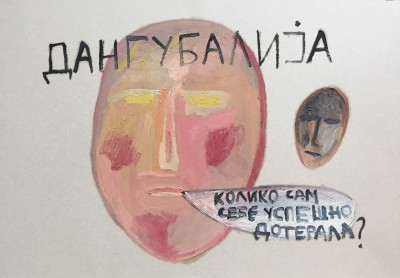 ДАНГУБАЛИЈА
КОЛИКО САМ
СЕБЕ УСПЕШНО
ДОТЕРАЛА?